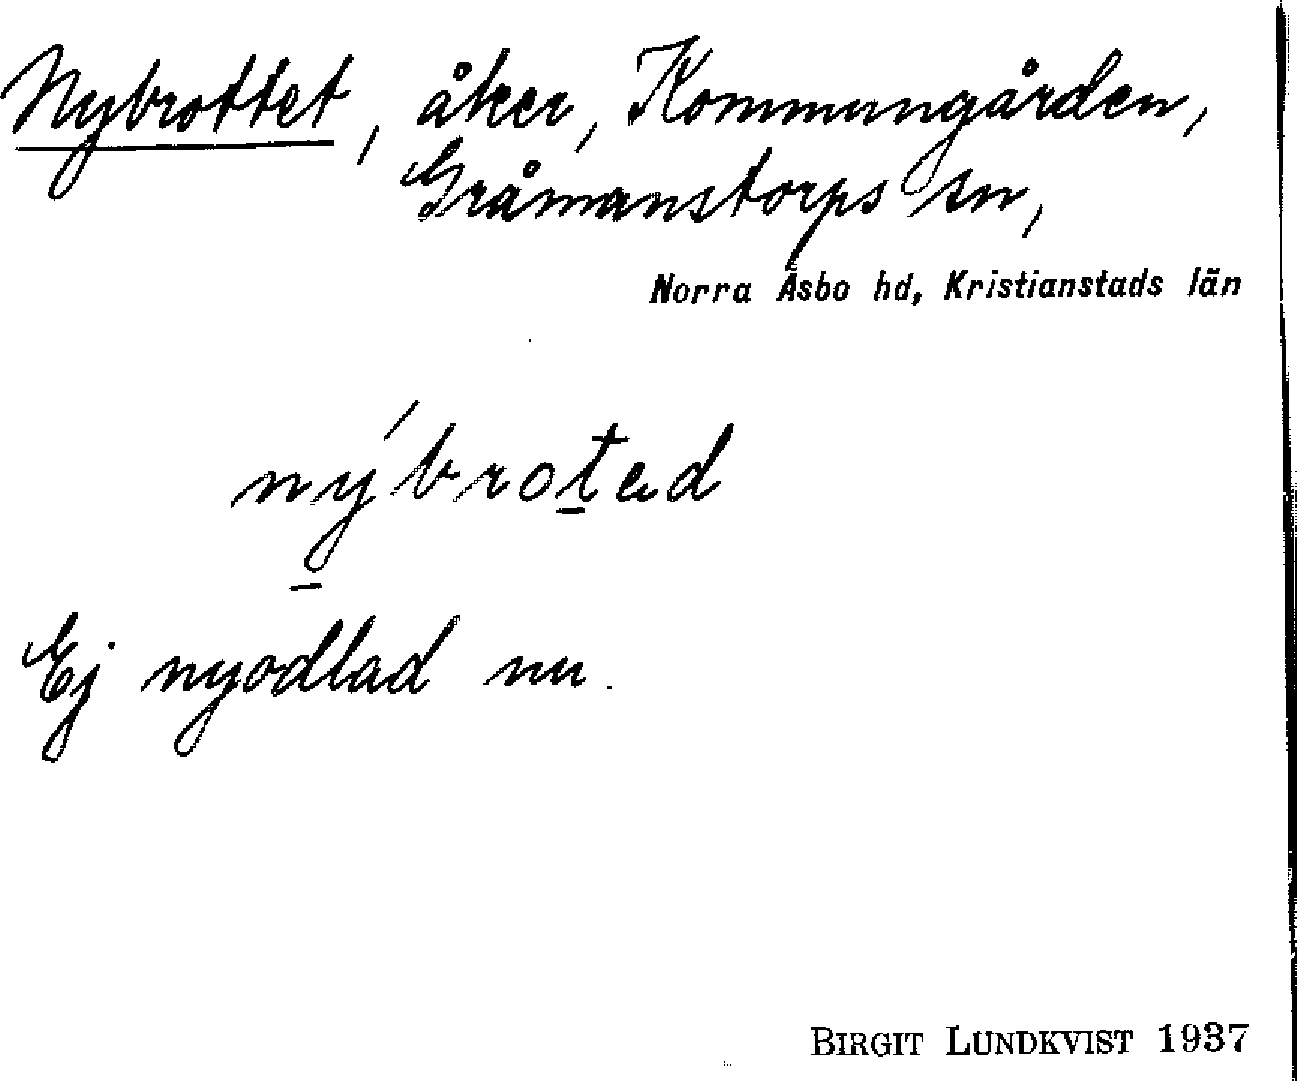 Nybrottet, åker, Kommungården,
Gråmanstorps sn,
Norra Åsbo hd, Kristianstads län
nýbroted
Ej nyodlad nu.
BIRGIT LUNDKVIST 1937